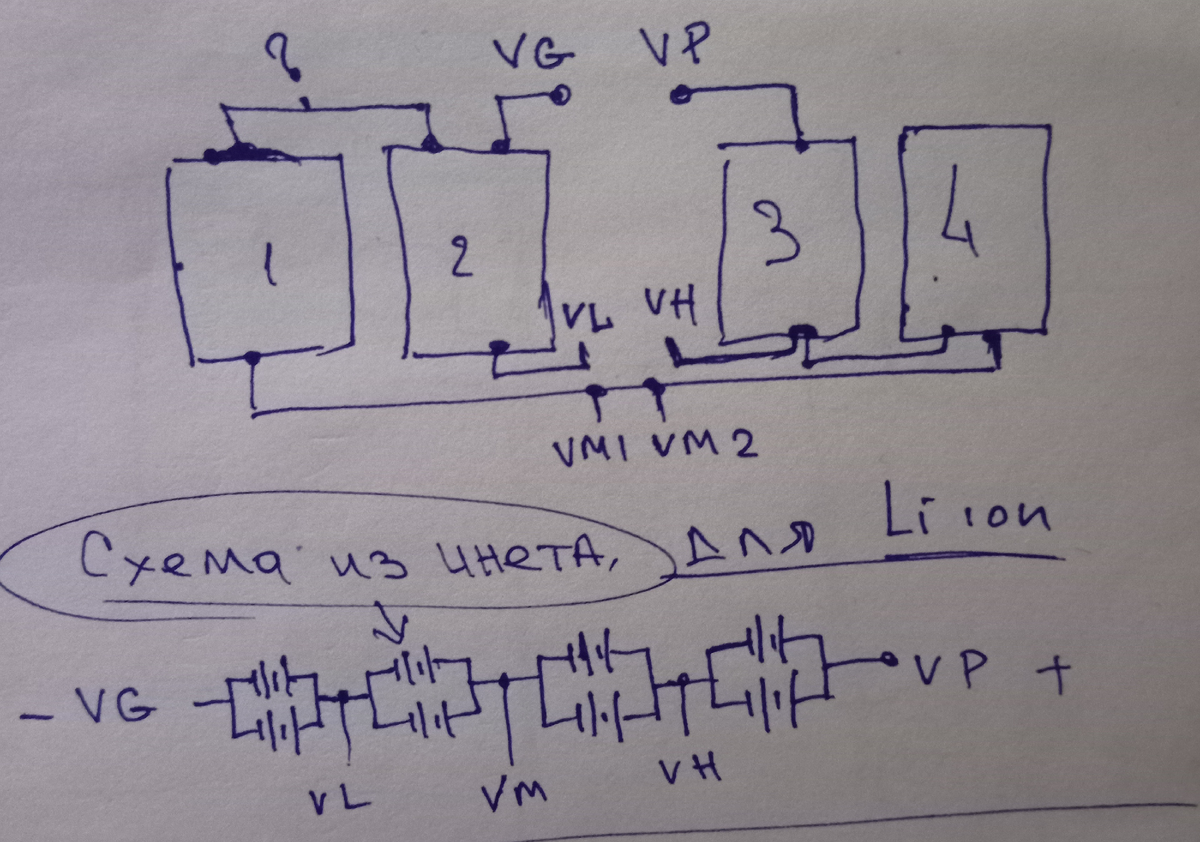 ? VG VP
1 2 3 4
VL VH
VM1 VM2
Схема из инета, для Li ion
- VG VP +
VL VM VH